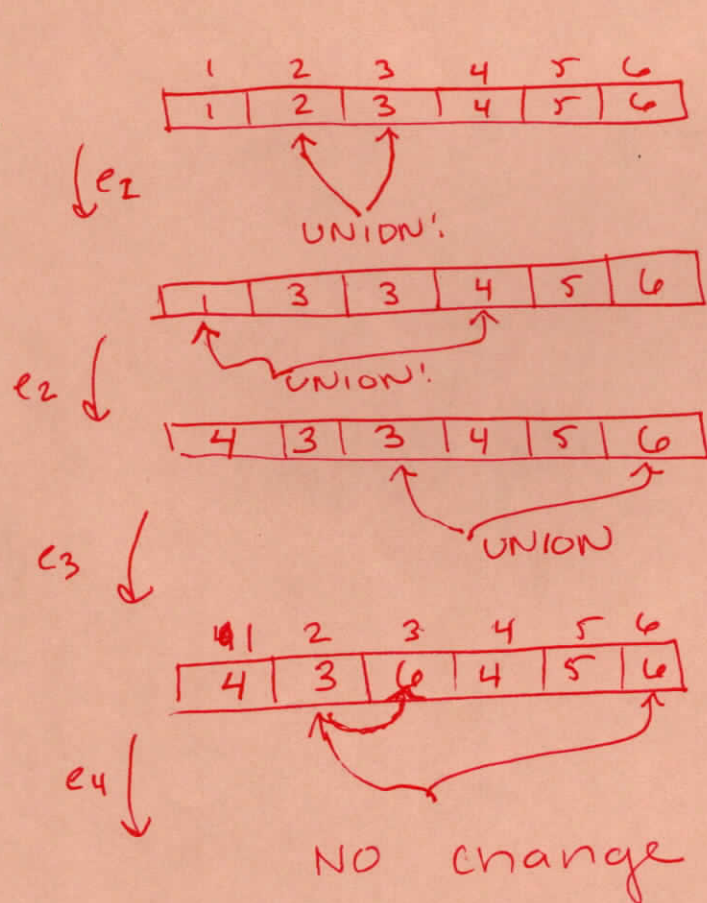 1 2 3 4 5 6
1 2 3 4 5 6
e1
UNION!
1 3 3 4 5 6
e2
UNION!
4 3 3 4 5 6
UNION
e3
1 2 3 4 5 6
4 3 6 4 5 6
e4
NO change